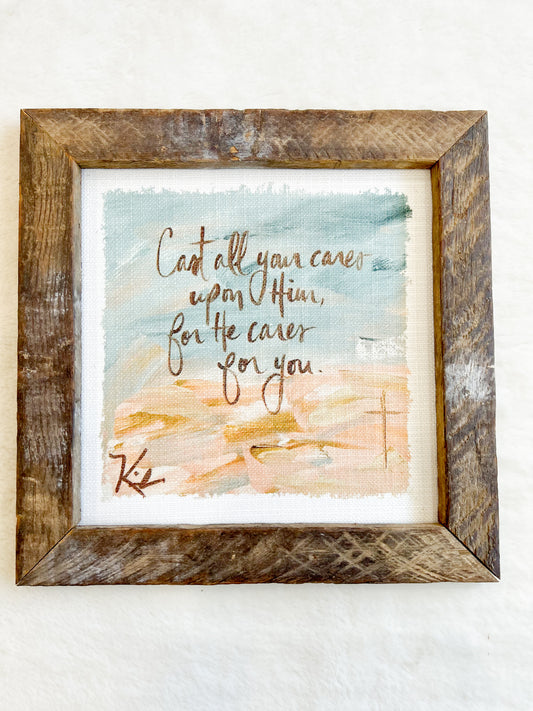 Cast all your cares
upon Him,
for He cares
for you.